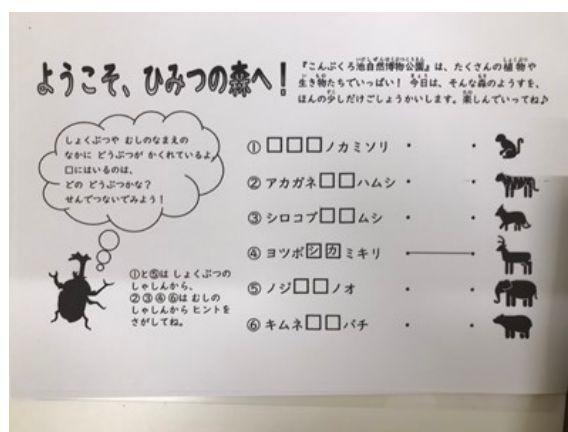 ようこそ、ひみつの森へ!
『こんぶくろ池自然博物公園』は、たくさんの植物や
生き物たちでいっぱい! 今日は、そんな森のようすを、
ほんの少しだけごしょうかいします。楽しんでいってね♪
しょくぶつや むしのなまえの
なかに どうぶつが かくれているよ。
□にはいるのは、
どの どうぶつかな?
せんでつないでみよう!
①と⑤は しょくぶつの
しゃしんから、
②③④⑥は むしの
しゃしんから ヒントを
さがしてね。
① □□□ノカミソリ
② アカガネ□□ハムシ
③ シロコブ□□ムシ
④ ヨツボシカミキリ
⑤ ノジ□□ノオ
⑥ キムネ□□バチ